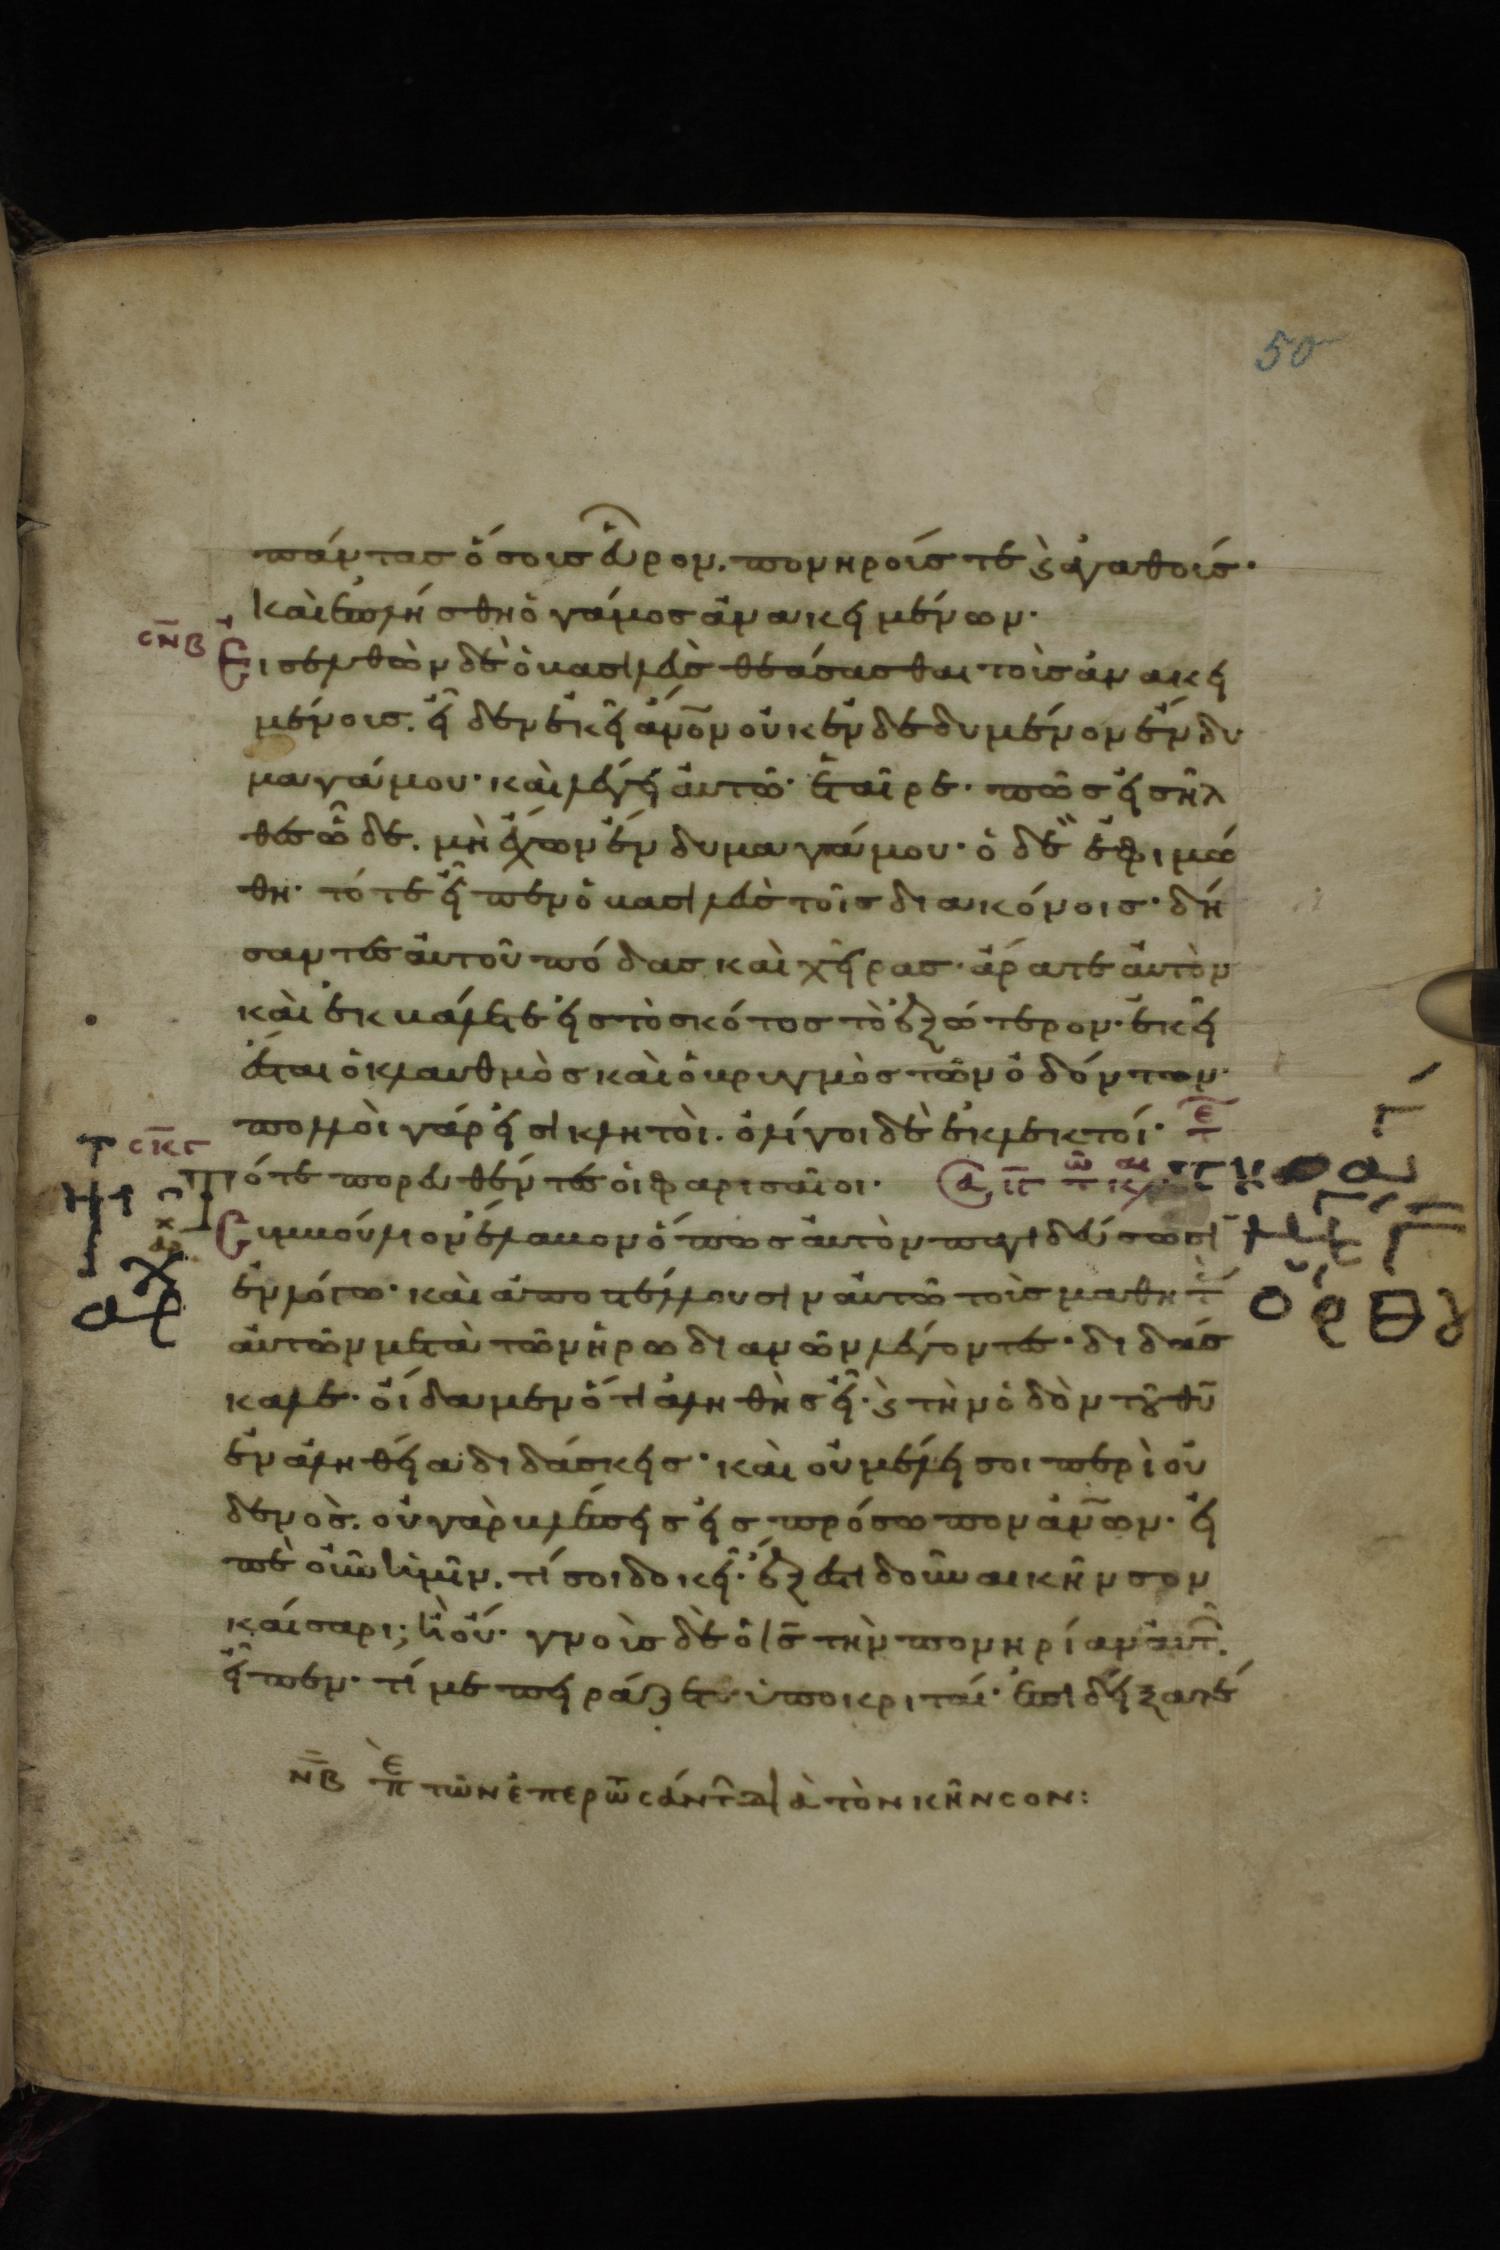 50
πάντας ὅσους εὗρον. πονηρούς τε ϗ ἀγαθούς·
Καὶ ἐπλήσθη ὁ γάμος ἀνακειμένων·
σ̅ν̅β Εἰσελθὼν δὲ ὁ βασιλεὺς θεάσασθαι τοὺς ἀνακει
μένους. εἶδεν ἐκεῖ ἀ̅ν̅ο̅ν οὐκ ἐνδεδυμένον ἔνδυ
μα γάμου· καὶ λέγει αὐτῶ· ἑταῖρε· πῶς εἰσῆλ
θες ὧδε. μὴ ἔχων ἔνδυμα γάμου· ὁ δὲ ἐφιμώ
θη· τότε εἶπεν ὁ βασιλεὺς τοῖς διακόνοις· δή
σαντες αὐτοῦ πόδας καὶ χεῖρας· ἄρατε αὐτὸν
καὶ ἐκβάλετε εἰς τὸ σκότος τὸ ἐξώτερον· ἐκεῖ
ἔσται ὁ κλαυθμὸς καὶ ὁ βρυγμὸς τῶν ὀδόντων·
πολλοὶ γάρ εἰσι κλητοὶ. ὀλίγοι δὲ ἐκλεκτοί·
σ̅κ̅γ
Τότε πορευθέντες οἱ φαρισαῖοι·
Συμβούλιον ἔλαβον ὅπως αὐτὸν παγιδεύσωσι
ἐν λόγω· καὶ ἀποστέλλουσιν αὐτῶ τοὺς μαθητ
αὐτῶν μετὰ τῶν ἡρωδιανῶν λέγοντες· διδάσ
καλε· οἴδαμεν ὅτι ἀληθὴς εἶ· ϗ τὴν ὁδὸν τοῦ θ̅υ
ἐν ἀληθεία διδάσκεις· καὶ οὐ μέλει σοι περὶ οὐ
δενὸς. οὐ γὰρ βλέπεις εἰς πρόσωπον ἀ̅ν̅ω̅ν· εἰ
πὲ οὖν ἡμῖν. τί σοι δοκεῖ· ἔξεστι δοῦναι κῆνσον
καίσαρι; ἢ οὔ· γνοὺς δὲ ὁ ι̅ς τὴν πονηρίαν αὐτ.
εἶπεν· τί με πειράζετε ὑποκριταί· ἐπιδείξατέ
ν̅β̅ πε τῶν ἐπερωτσάντ διὰ τὸν κῆνσον: